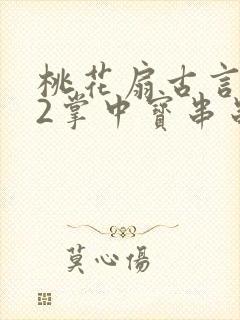 桃花扇古言
2掌中寶串
莫心傷